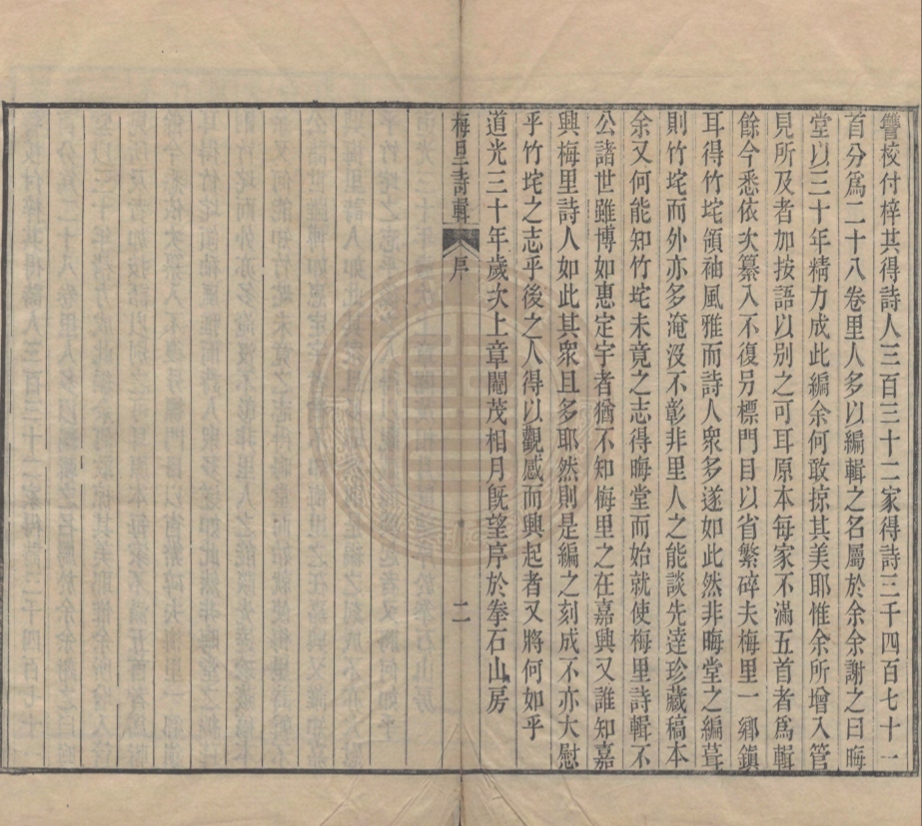 讐校付梓其得詩人三百三十二家得詩三千四百七十一
首分為二十八卷里人多以編輯之名屬於余余謝之曰晦
堂以三十年精力成此編余何敢掠其美耶惟余所增入管
見所及者加按語以別之可耳原本每家不滿五首者為輯
餘今悉依次纂入不復另標門目以省繁碎夫梅里一鄉鎮
耳得竹垞領袖風雅而詩人衆多遂如此然非晦堂之編葺
則竹垞而外亦多淹沒不彰非里人之能談先達珍藏稿本
余又何能知竹垞未竟之志得晦堂而始就使梅里詩輯不
公諸世雖博如惠定宇者猶不知梅里之在嘉興又誰知嘉
興梅里詩人如此其衆且多耶然則是編之刻成不亦大慰
乎竹垞之志乎後之人得以觀感而興起者又將何如乎
道光三十年歲次上章閹茂相月旣望序於拳石山房
梅里詩輯 序 二